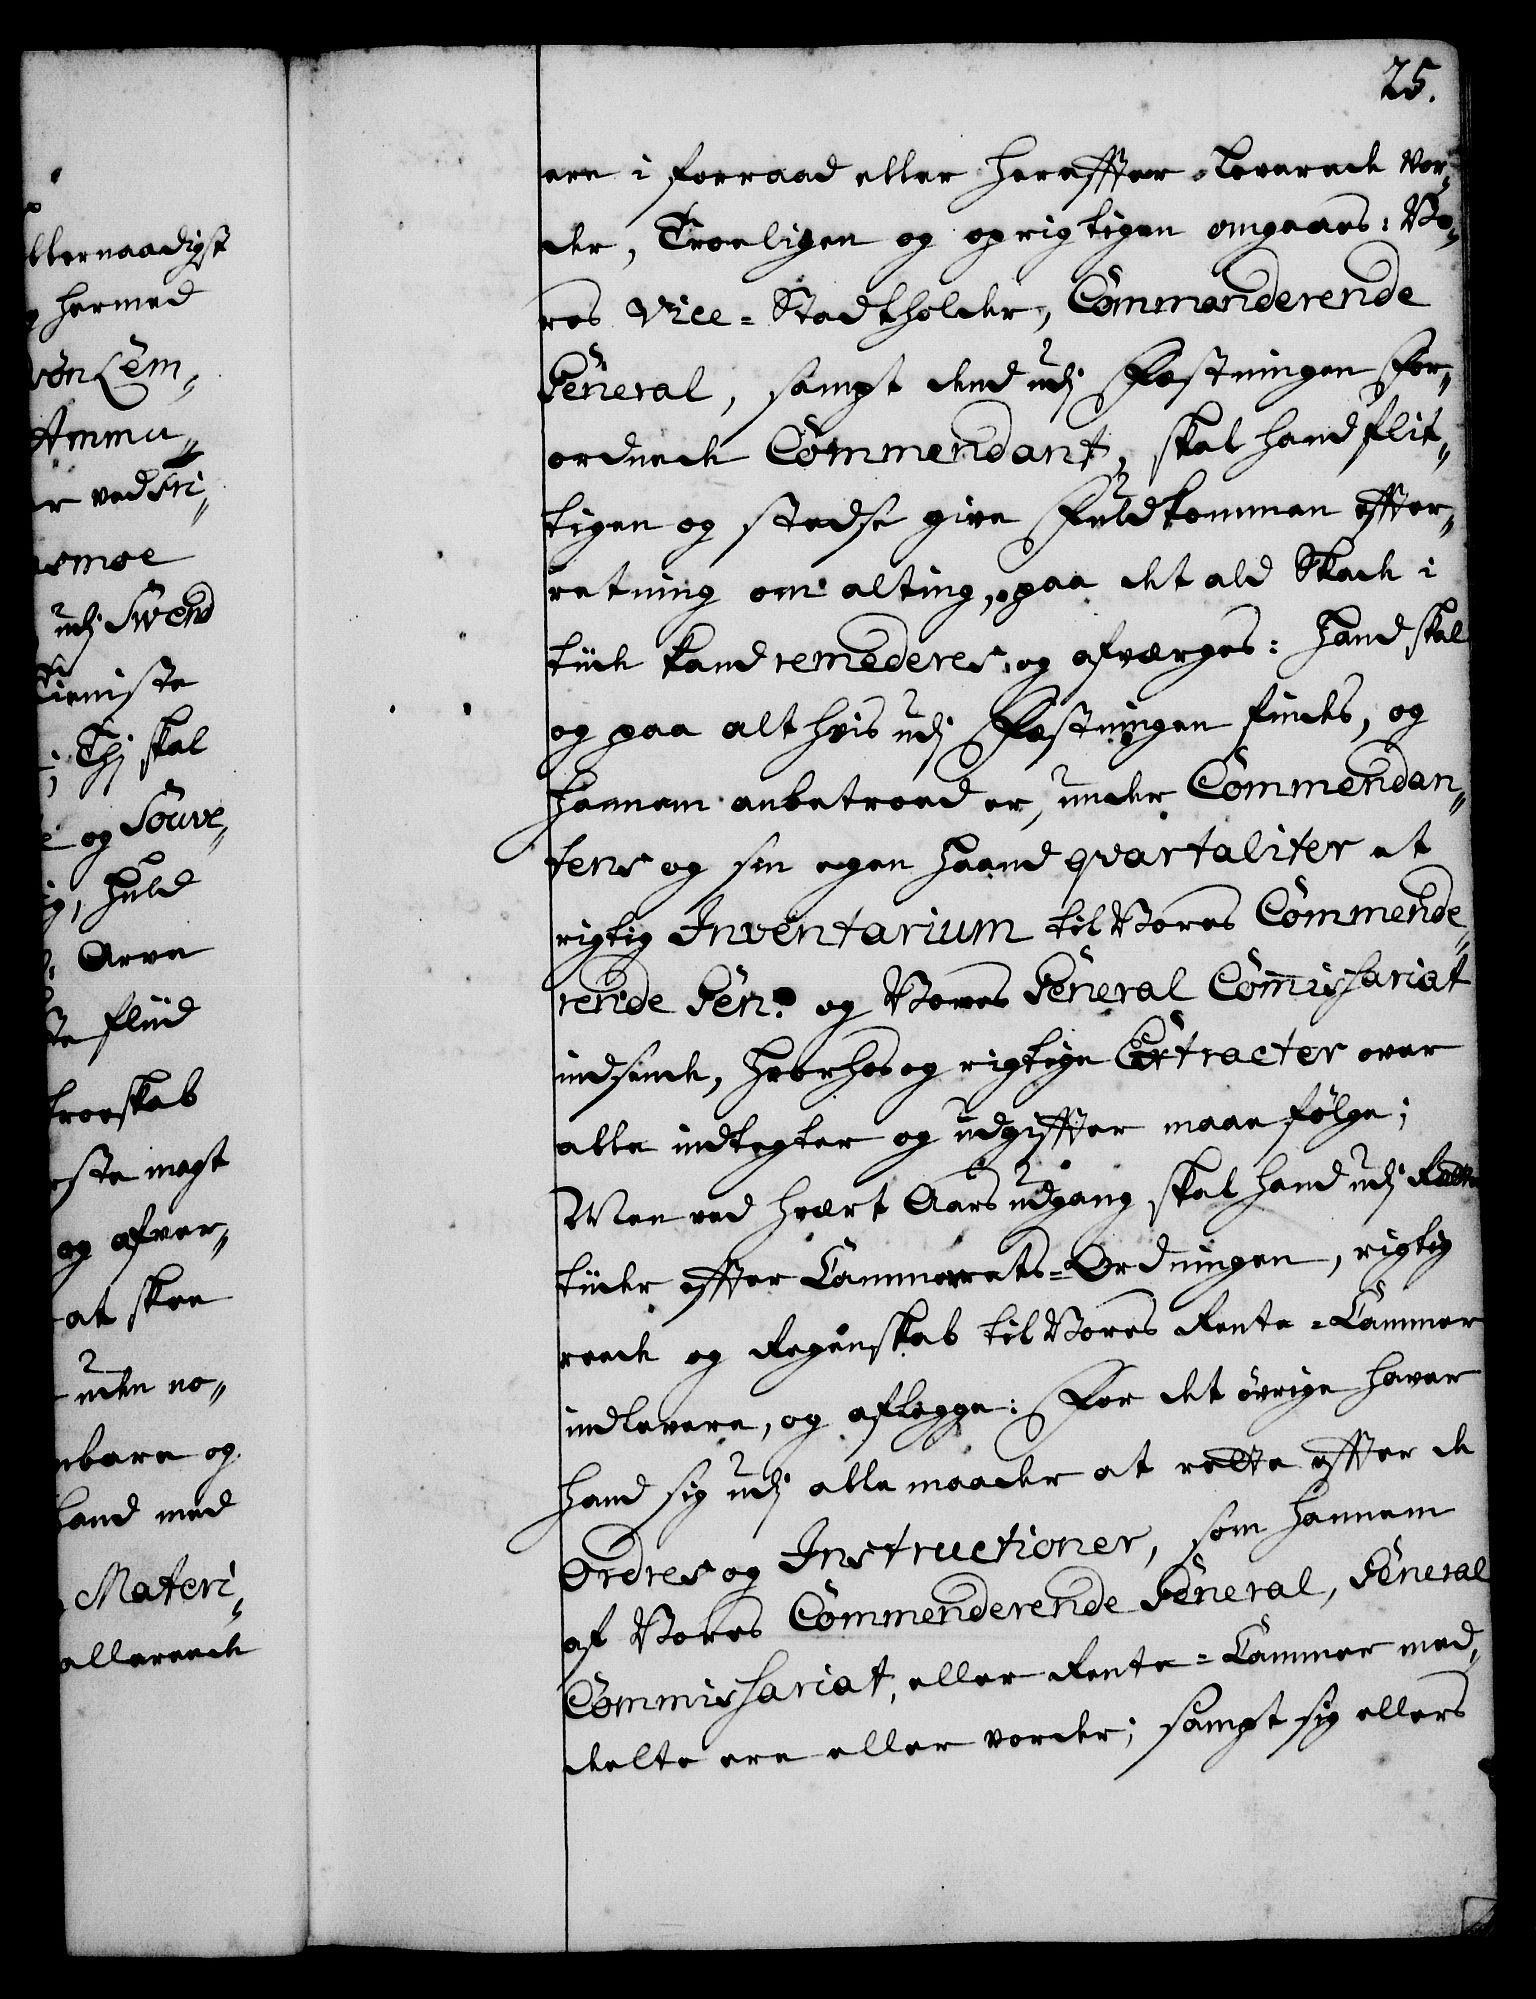 25.
llernaadigst
hermed
von Lem„
Ammu„
r ved Fri„
smoe
udj Swend
Tieniste
Thj skal
og Souve„
ig, huld
Arve
fliid
troeskab
ste magt
og afver„
at skee
uden no„
nbare og
hand med
Materi„
allereede
ere i forraad eller hereffter leverede vor„
der, Troeligen og oprigtigen omgaaes: Vo„
res Vice=Stadtholder, Commanderende
General, sampt dend udj Fæstningen For„
ordnede Commendant, skal hand flit„
tigen og stedse give Fuldkommen effter„
retning om alting, paa det ald Skade i
tiide kand remederes, og afværges: Hand skal
og paa alt hvis udj Fæstningen findes, og
Hannem anbetroed er, under Commendan„
tens og sin egen Haand qvartaliter et
rigtig Inventarium til Vores Commende„
rende Gen: og Vores General Commissariat
indsende, hvorhos og rigtige Extracter over
alle indtegter og udgiffter maae følge;
Men ved hvert Aars udgang skal hand udj Rette
tiider effter Cammerets=Ordningen, rigtig
reede og Regenskab til Vores Rente=Cammer
indlevere, og aflegge: For det övrige haver
hand sig udj alle maader at rette effter de
Ordres og Instructioner, som hannem
af Vores Commenderende General, General
Commissariat, eller Rente=Cammer med„
delte ere eller vorder; sampt sig ellers